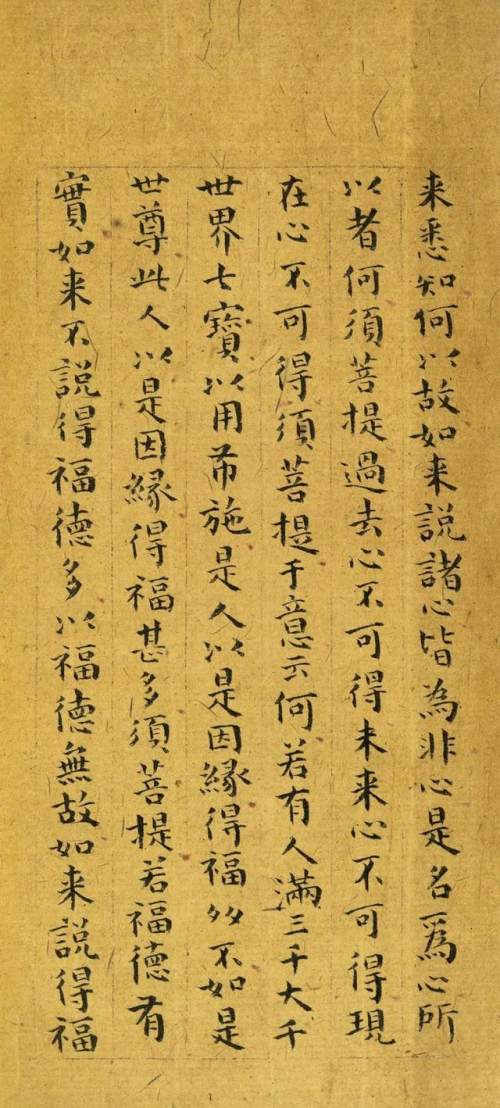 来悉知何以故如来説諸心皆為非心是名爲心所
以者何須菩提過去心不可得未来心不可得現
在心不可得須菩提扵意云何若有人滿三千大千
世界七寳以用布施是人以是因緣得福多不如是
世尊此人以是因緣得福甚多須菩提若福德有
實如来不說得福德多以福德無故如来說得福